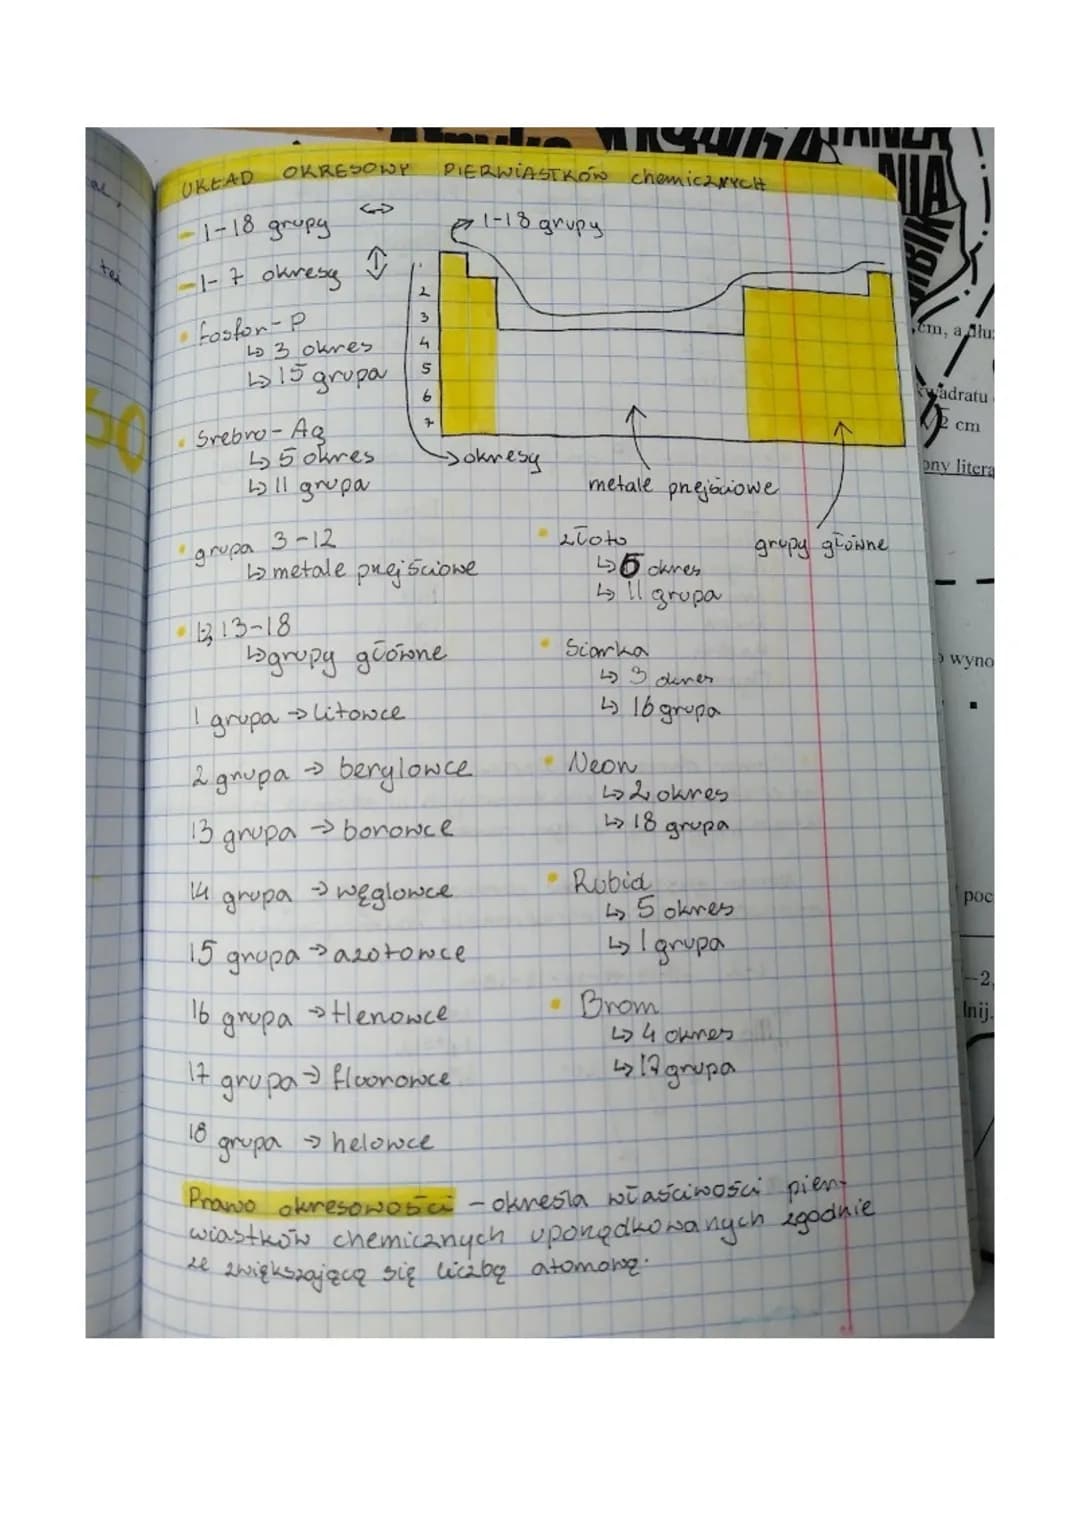 UKŁAD OKRESOWY PIERWIASTKÓW chemicznych
- 1-18 grupy ↔
- 1-7 okresy ↕
• fosfor - P
↳ 3 okres
↳ 15 grupa
• Srebro - Ag
↳ 5 okres
↳ 11 grupa
1-18 grupy
1
2
3
4
5
6
7
okresy
metale przejściowe
grupy główne
• grupa 3-12
↳ metale przejściowe
• 1,2, 13-18
↳ grupy główne
1 grupa → litowce
2 grupa → berylowce
13 grupa → borowce
14 grupa → węglowce
15 grupa → azotowce
16 grupa → tlenowce
17 grupa → fluorowce
18 grupa → helowce
• złoto
↳ 6 okres
↳ 11 grupa
• Siarka
↳ 3 okres
↳ 16 grupa
• Neon
↳ 2 okres
↳ 18 grupa
• Rubid
↳ 5 okres
↳ 1 grupa
• Brom
↳ 4 okres
↳ 17 grupa
Prawo okresowości - określa właściwości pier-
wiastków chemicznych uporządkowanych zgodnie
ze zwiększającą się liczbą atomową.
też
60
NIA
cm, a dłu
kwadratu
√2 cm
ony litera
wyno
poc
-2,
lnij.